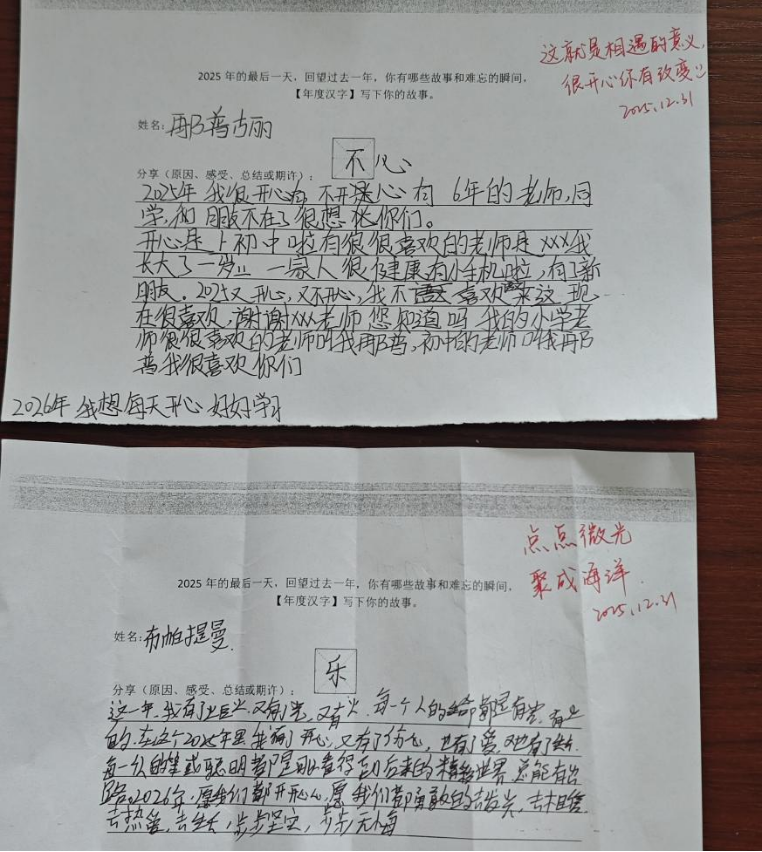 这就是相遇的意义,
很开心你有改变
2025.12.31
2025 年的最后一天，回望过去一年，你有哪些故事和难忘的瞬间，
【年度汉字】写下你的故事。
姓名: 再乃普古丽
不心
分享（原因、感受、总结或期许）：
2025年我很开心有 不开心有 6年的老师,同
学,们 朋友不在了很想他你们。
开心是上初中啦有很很喜欢的老师是XXX我
长大了一岁!! 一家人很健康有小手机啦,有了新
朋友。2025又开心,又不开心,我不 喜欢 这 现
在很喜欢,谢谢XXX老师您知道吗 我的小学老
师很很喜欢的老师叫我再乃普,初中的老师叫我再乃
普我很喜欢你们
2026年 我想每天开心 好好学习
点点微光
聚成海洋
2025.12.31
2025 年的最后一天，回望过去一年，你有哪些故事和难忘的瞬间，
【年度汉字】写下你的故事。
姓名: 布帕提曼
乐
分享（原因、感受、总结或期许）：
这一年,我有了 又有了光,又有火,每一个人的 都是有 有
的,在这个2025年里我有了开心,又有了 也有了爱,
每一次的 或聪明都是 后来的精彩世界,总能有出
路。2026年,愿我们都开开心心,愿我们都勇敢的去发光,去相信
去热爱,去生长,步步坚定,步步无悔